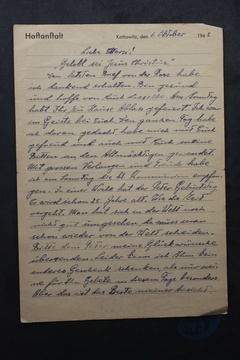 Haftanstalt
Kattowitz, den 6. Oktober 1942
Liebe Eltern!
"Gelobt sei Jesus Christus"
Den letzten Brief von der Rose habe
ich dankend erhalten. Bin gesund
und hoffe von Euch dasselbe. Am Sonntag
habt Ihr zu Hause Ablass gefeiert. Ich war
im Geiste bei Euch. Den ganzen Tag habe
ich daran gedacht habe mich mit Euch
gefreut und auch mit Euch meine
Bitten an den Allmächtigen gesendet.
Mit grossem Verlangen und Freude habe
ich am Sonntag die hl. Kommunion empfan-
gen. In einer Woche hat der Peter Geburtstag.
Er wird schon 25. Jahre alt. Wie die Zeit
vergeht. Man hat sich in der Welt noch
nicht gut umgesehen da muss man
schon wieder von der Welt scheiden.
Bitte dem Peter meine Glückwünsche
übersenden. Leider kann ich Ihm kein
anderes Geschenk schenken als nur mei-
ne für Ihn Gebete an diesem Tage besonders.
Aber das ist das Beste meiner Ansicht